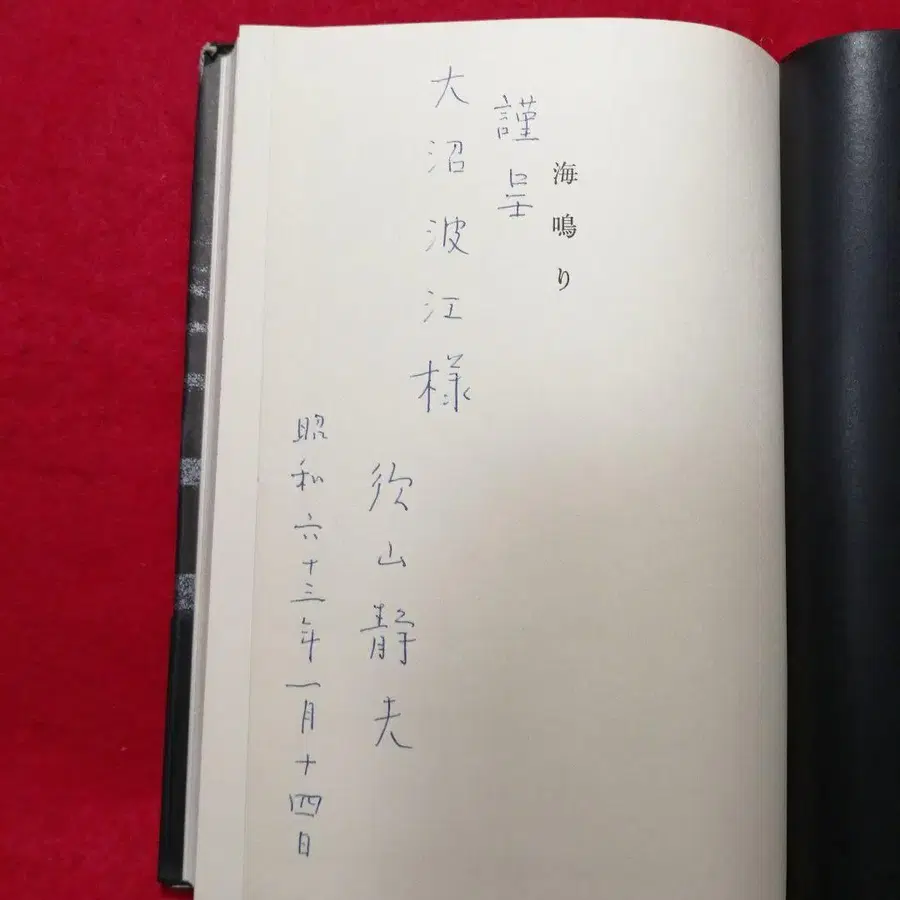 海鳴り
謹呈
大沼波江様
須山静夫
昭和六十三年一月十四日